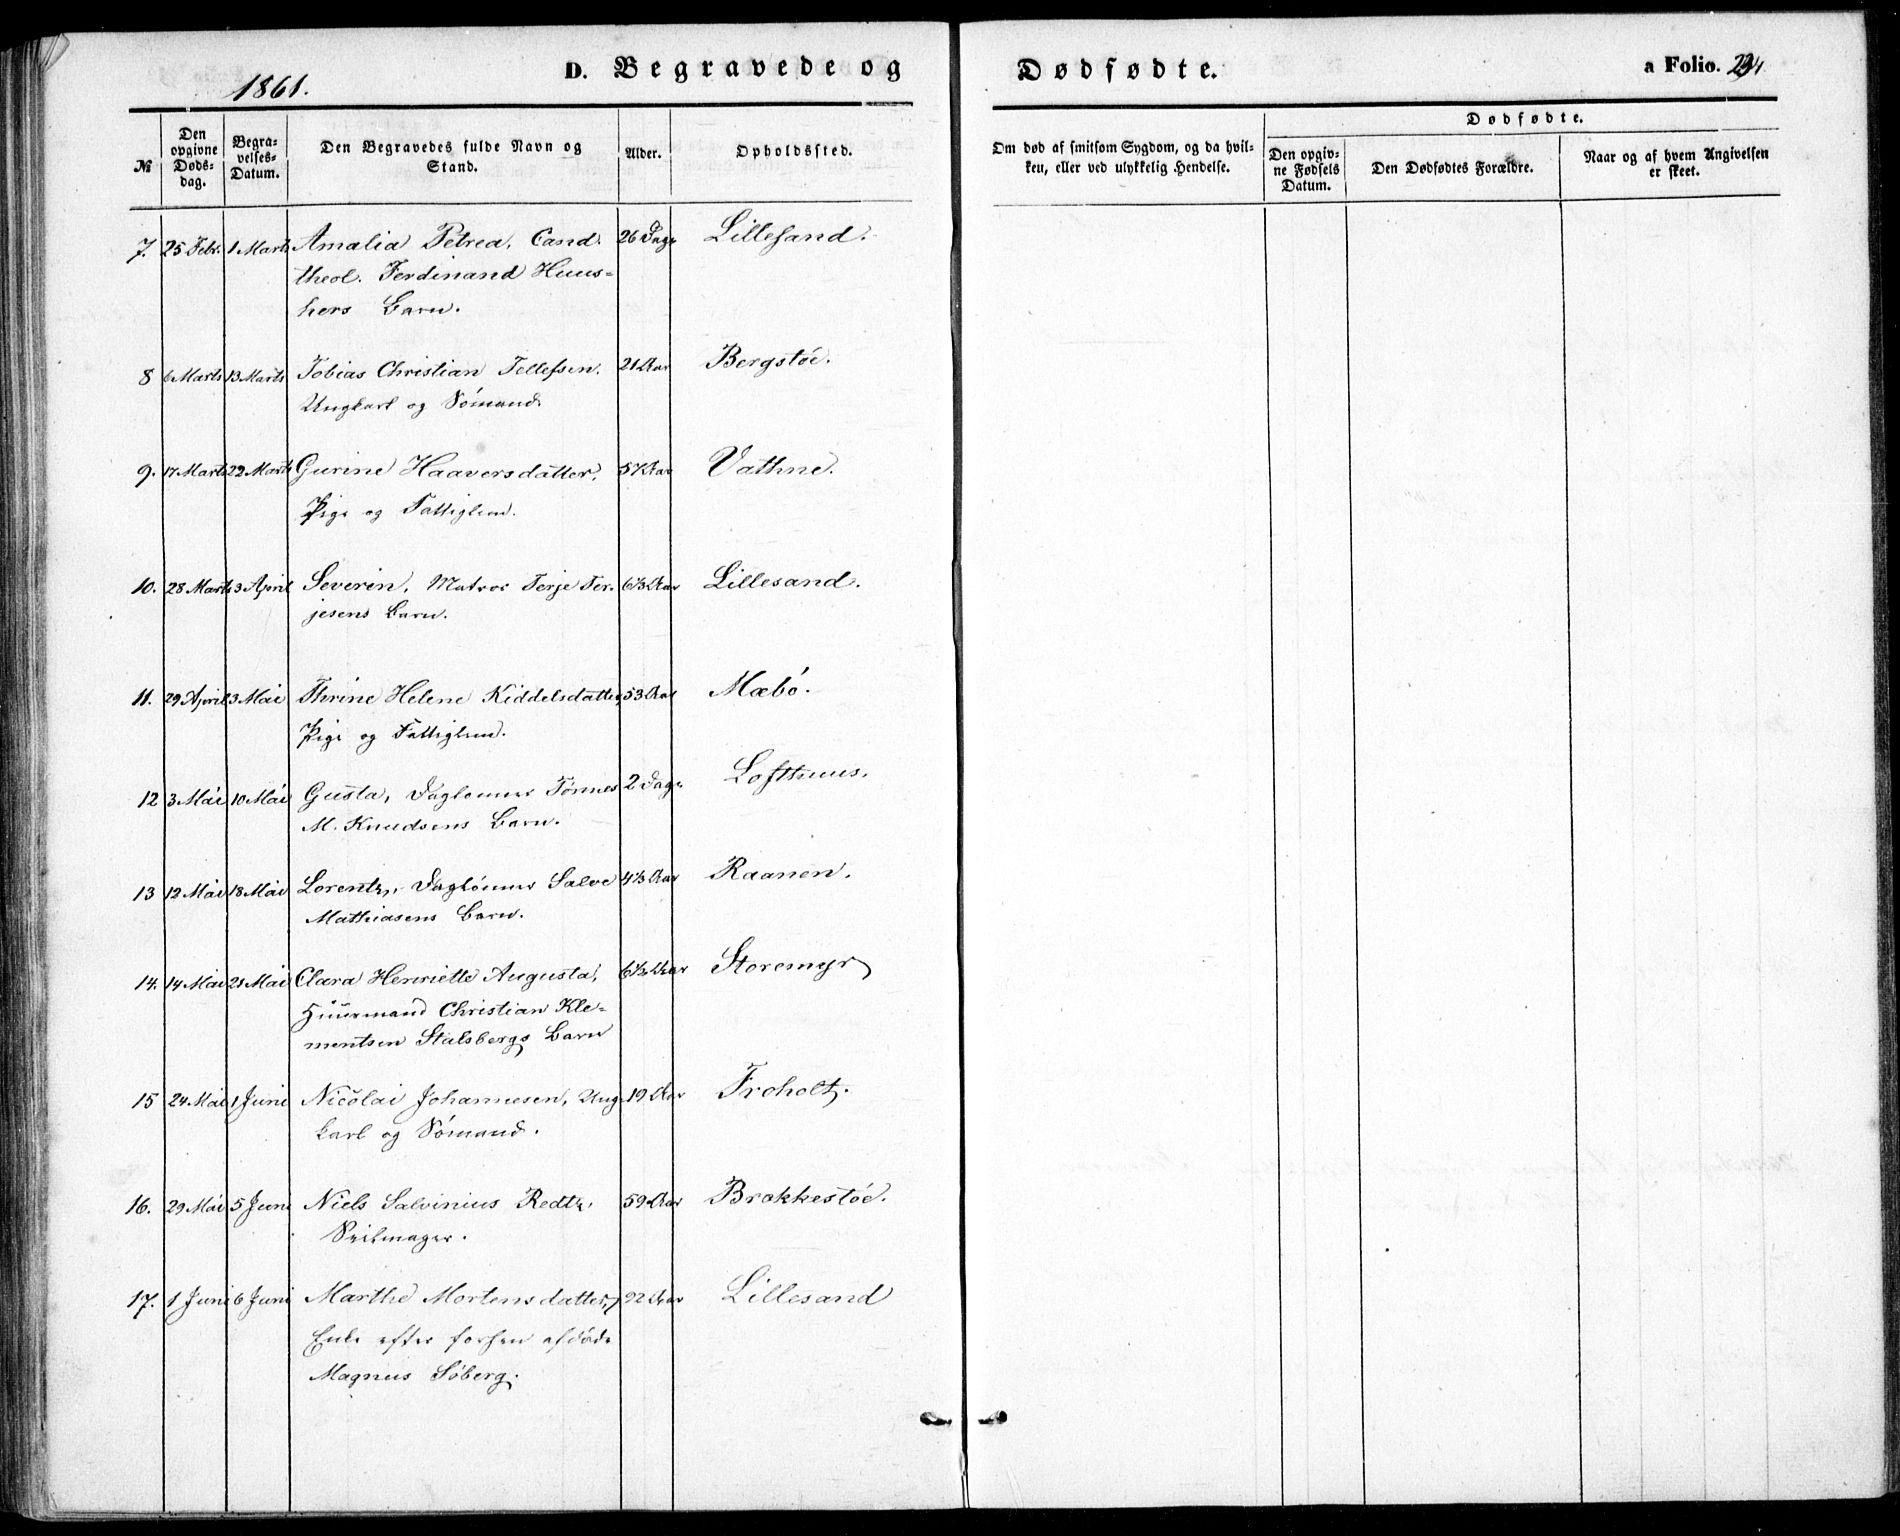 1861.
D. Begravede og Dødfødte. a Folio. 234
№ Den opgivne Døds-dag. Begra-velses-Datum. Den Begravedes fulde Navn og Stand. Alder. Opholdssted. Om død af smitsom Sygdom, og da hvil-ken, eller ved ulykkelig Hendelse. Dødfødte. Den opgiv-ne Fødsels Datum. Den Dødfødtes Forældre. Naar og af hvem Angivelsen er skeet.
7. 25 Febr. 1 Marts Amalia Petrea, Cand. 26 Dage Lillesand.
theol. Ferdinand Huus-
hers Barn.
8 6 Marts 13 Marts Tobias Christian Tellefsen. 21 Aar Bergstøe.
Ungkarl og Sömand.
9. 17 Marts 22 Marts Gurine Haaversdatter, 57 Aar Vathne.
Pige og Fattiglem.
10. 28 Marts 3 April Severin, Matros Terje Ter- 6 1/3 Aar Lillesand.
jesens Barn.
11. 29 April 3 Mai Thrine Helene Kiddelsdatter, 53 Aar Mæbó.
Pige og Fattiglem.
12 3 Mai 10 Mai Gusta, Daglønner Tönnes 2 Dage Lofthuus.
M. Knudsens Barn.
13 12 Mai 18 Mai Lorentz, Daglónner Salve 4 1/3 Aar Raanen.
Mathiasens Barn.
14. 14 Mai 21 Mai Clara Henriette Augusta, 6 1/2 Aar Storemyr
Huusmand Christian Kle-
mentsen Stalsbergs Barn
15 24 Mai 1 Juni Nicolai Johannesen, Ung- 19 Aar Froholt.
karl og Sömand.
16. 29 Mai 5 Juni Niels Salvinius Redtz, 59 Aar Brækkestøe.
Seilmager.
17. 1 Juni 6 Juni Marthe Mortensdatter, 92 Aar Lillesand
Enke efter forhen afdöde
Magnus Söberg.